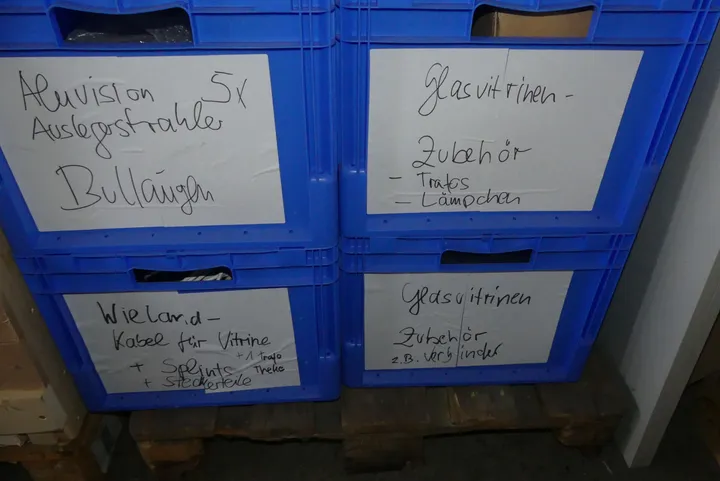 Aluvision 5x
Auslegerstrahler
Bullaugen
Glasvitrinen -
Zubehör
- Trafos
- Lämpchen
Wieland -
Kabel für Vitrine
+ 1 Trafo
+ Splints Theke
+ Steckerteile
Glasvitrinen
Zubehör
z.B. Verbinder